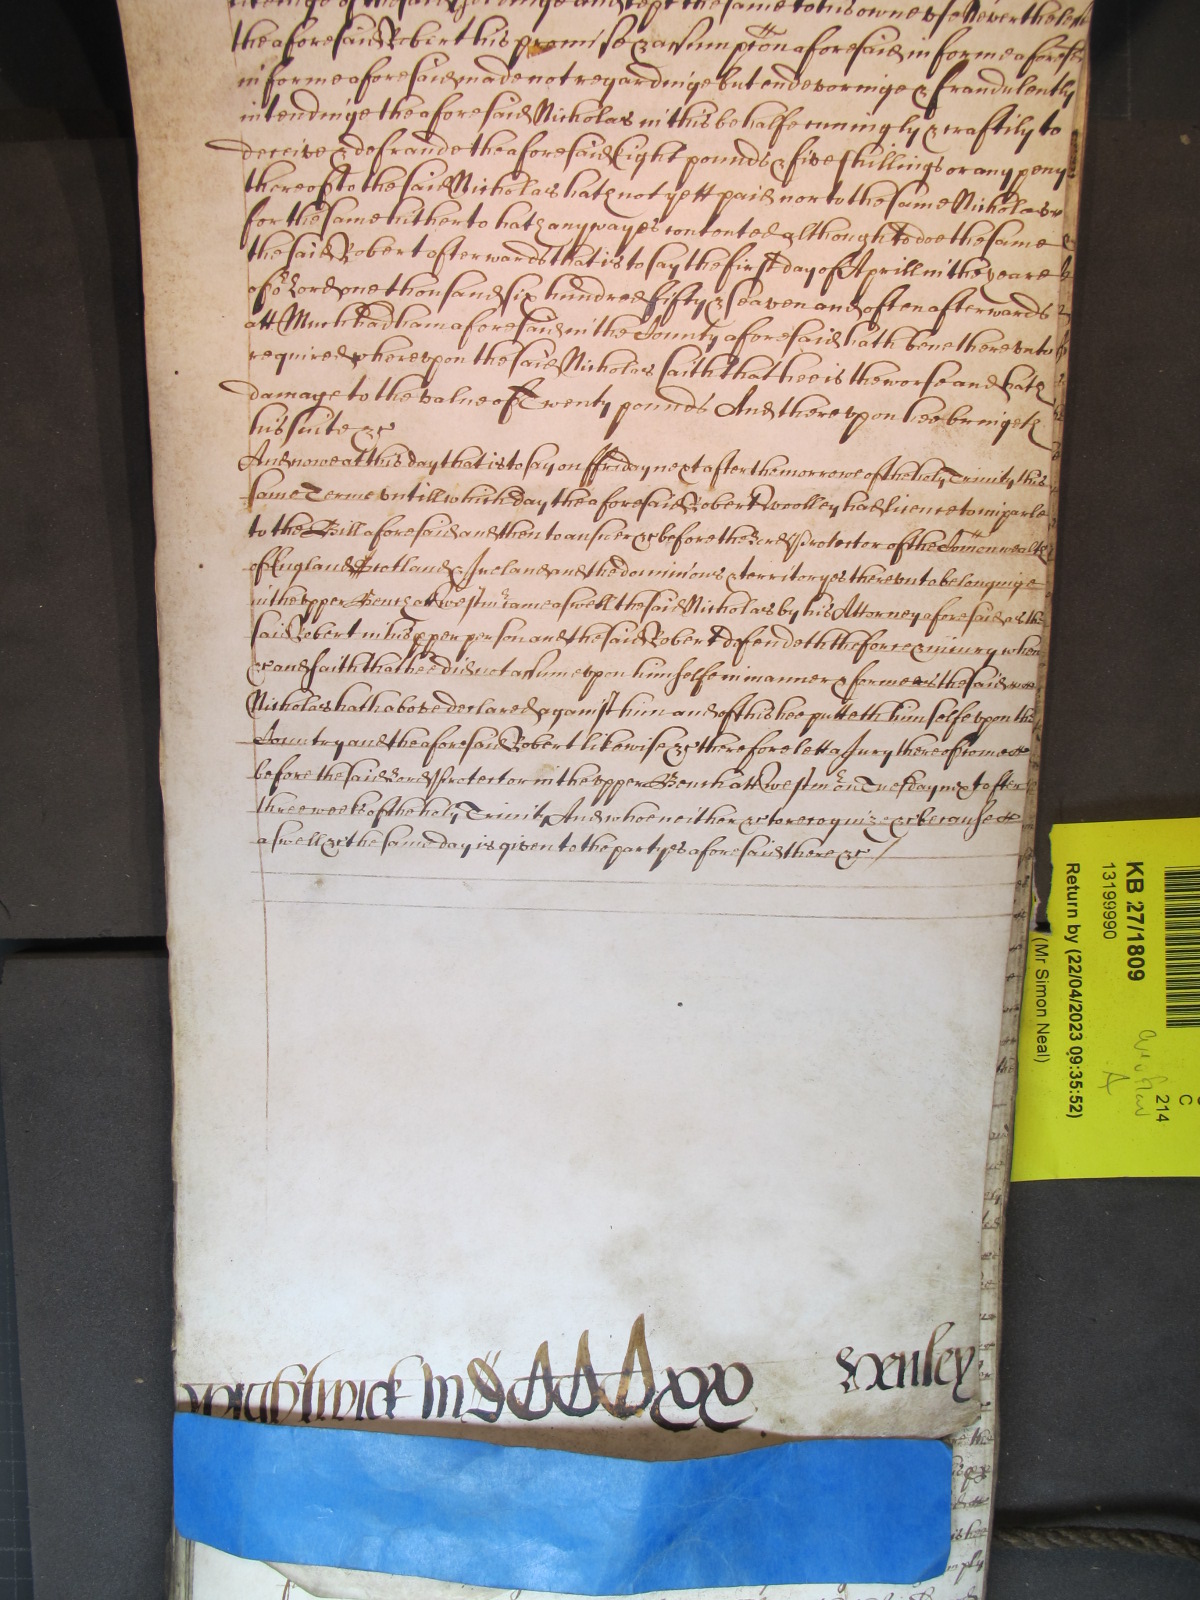 the same to his owne use Neverthelesse
the aforesaid Robert his promise & assumpcon aforesaid in forme aforesaid
in forme aforesaid made not regardinge but endevoringe & fraudulently
intendinge the aforesaid Nicholas in this behalfe cuningly & craftily to
deceive & defraude the aforesaid Eight pounds & five shillings or any peny
thereof to the said Nicholas hath not yett paid nor to the same Nicholas
for the same hitherto hath any wayes contented although to doe the same
the said Robert afterwards that is to say the first day of Aprill in the yeare
of or Lord one thousand six hundred fifty & seaven and often afterwards
att Much Hadham aforesaid in the County aforesaid hath bene thereunto
required whereupon the said Nicholas saith that hee is the worse and hath
damage to the value of Twenty pounds And thereupon hee bringeth
his suite &c
And nowe at this day that is to say on ffriday next after the morrowe of the holy Trinity this
same Terme untill which day the aforesaid Robert Woolley had licence to imparle
to the Bill aforesaid and then to answer &c before the Lord Protector of the Comonwealth
of England Scotland & Ireland and the dominions & territoryes thereunto belonginge
in the upper Bench att Westmr came aswell the said Nicholas by his Attorney aforesaid as the
said Robert in his pper person and the said Robert defendeth the force & iniury when
&c and saith that hee did not assume upon himselfe in manner & forme as the said
Nicholas hath above declared against him and of this hee putteth himselfe upon the
Country and the aforesaid Robert likewise &c therefore lett a Jury thereof come
before the said Lord Protector in the upper Bench att Westmr on Tuesday next after
three weeks of the holy Trinity And whoe neither &c to recognize &c because
aswell &c the same day is given to the partyes aforesaid there &c
Wightwick
Henley
KB 27/1809
13199990
Return by (22/04/2023 09:35:52)
(Mr Simon Neal)
C
214
A